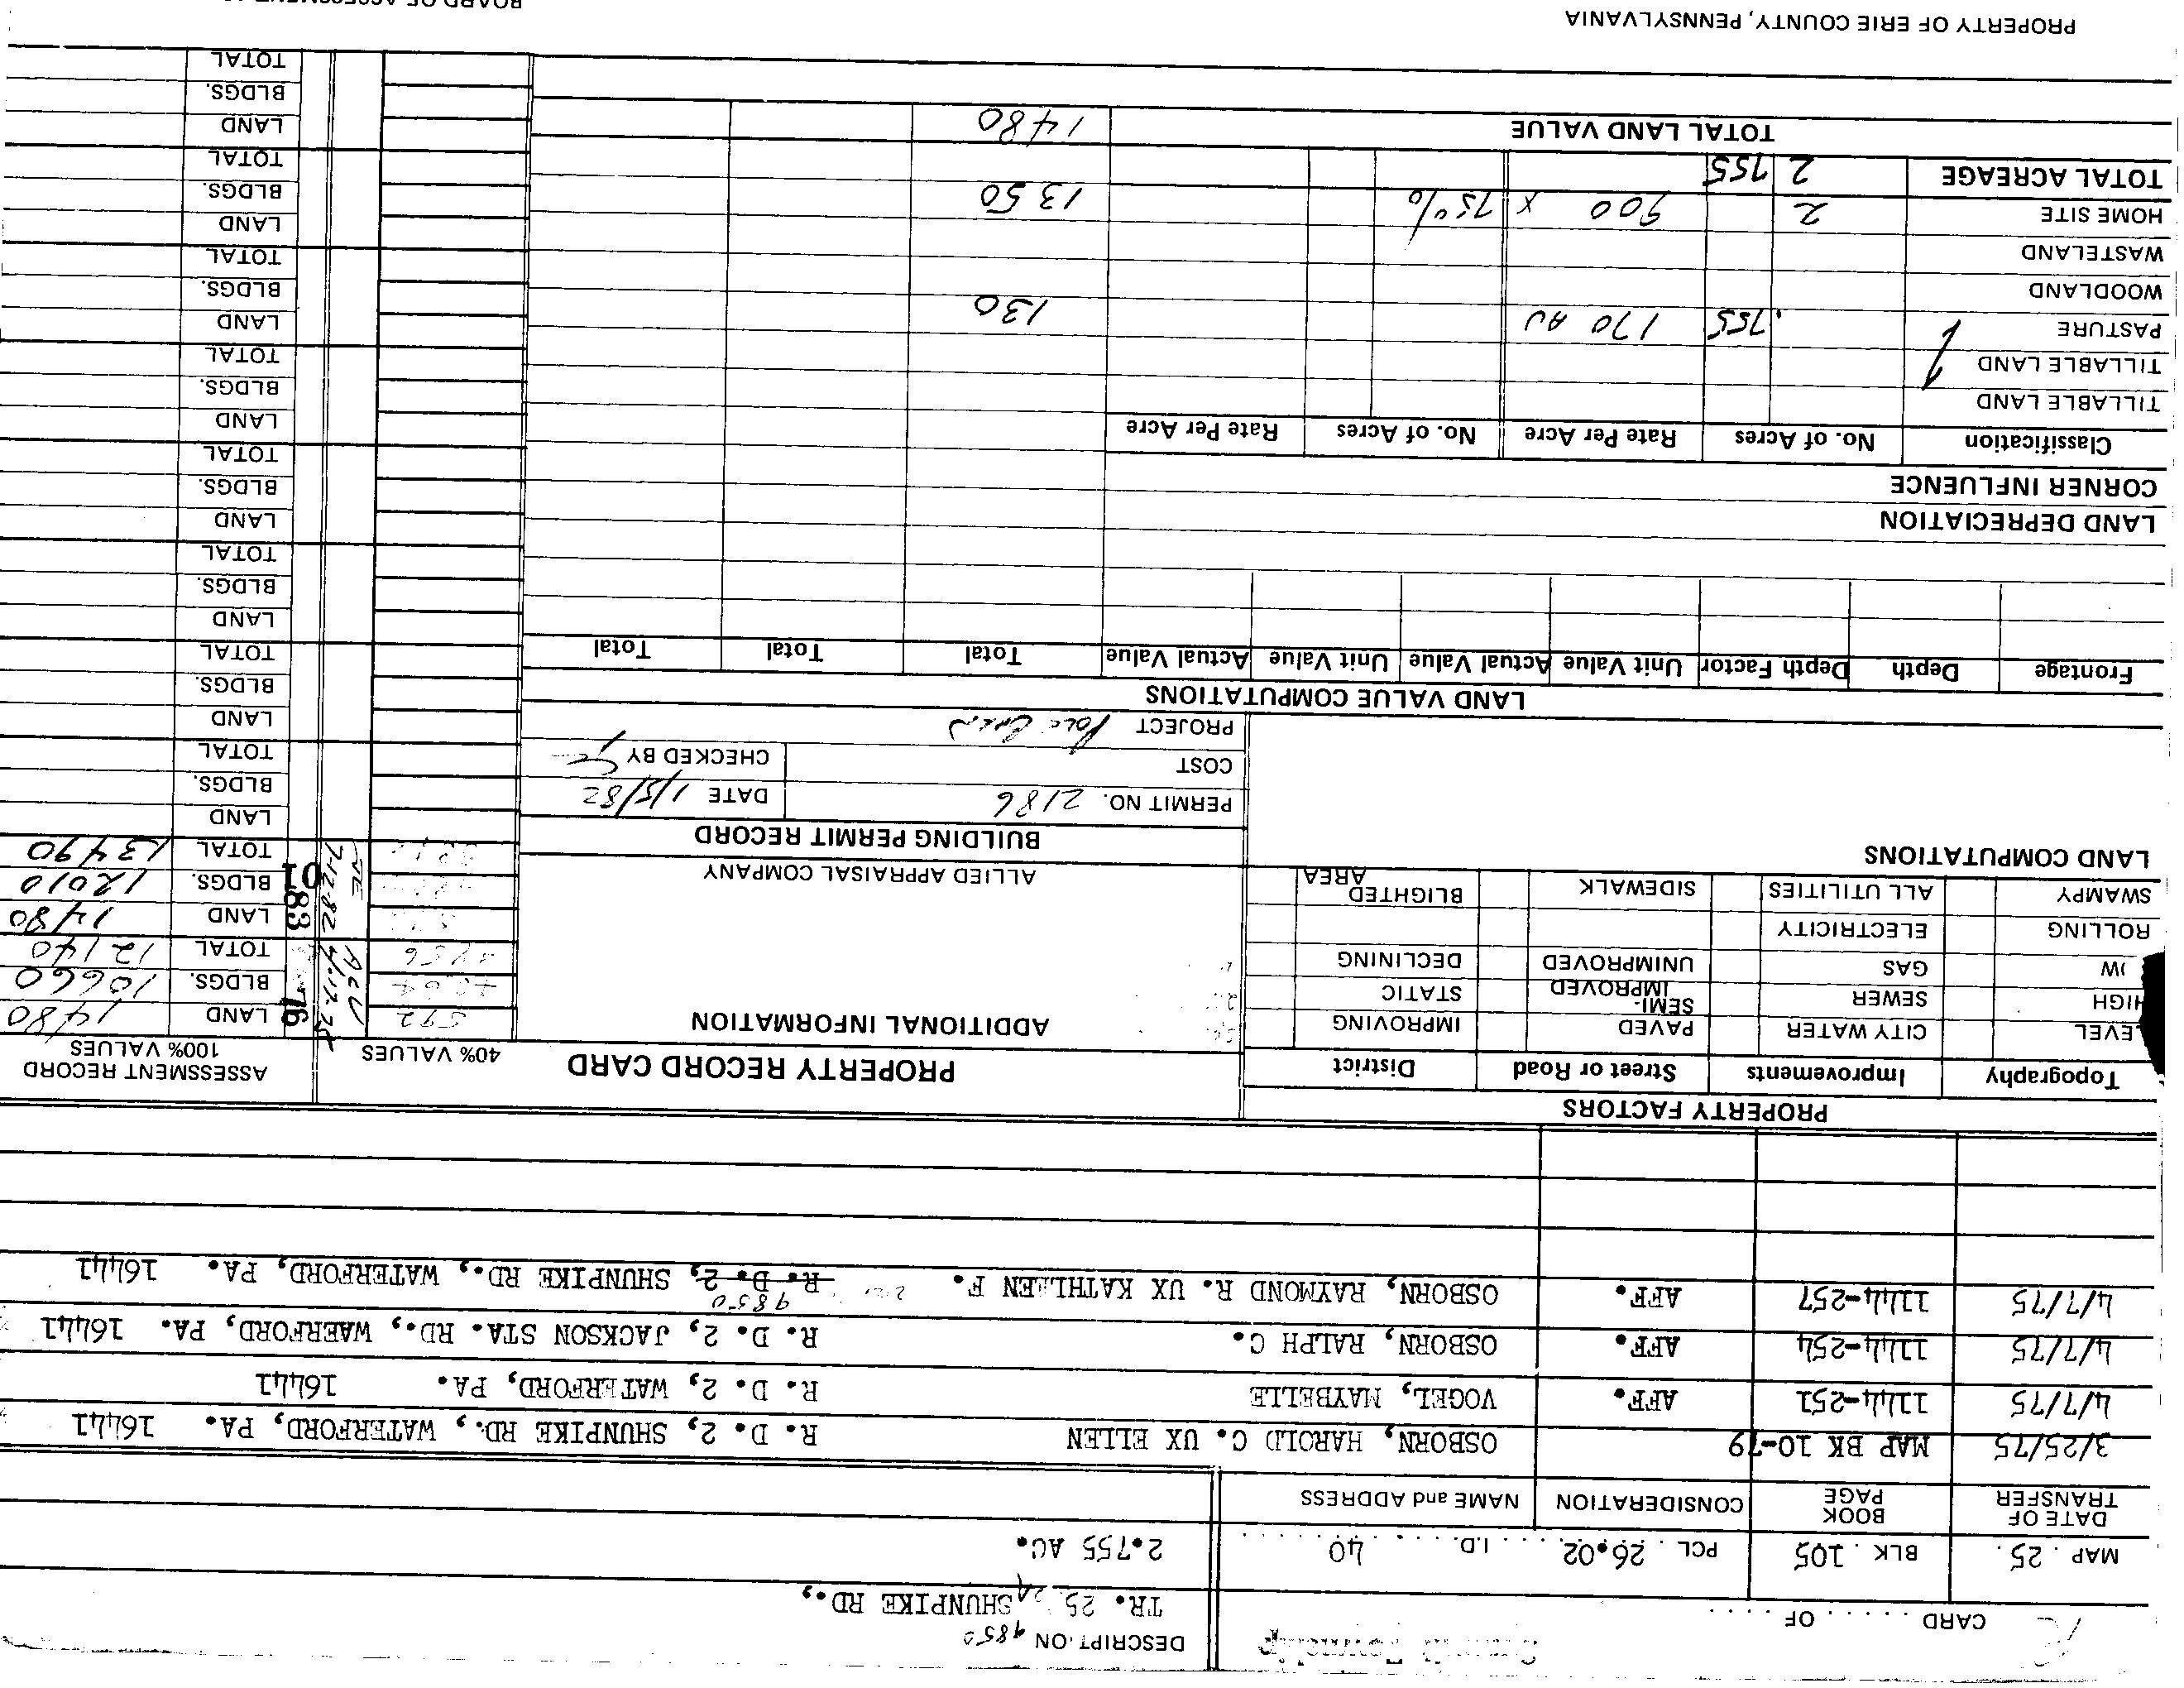 CARD . . . . . OF . . . . .
DESCRIPTION 9850
TR. 25 SHUNPIKE RD.,
2.755 AC.
MAP . 25 . BLK . 105 PCL . 26.02 . . . I.D. . . . 40 . . . .
DATE OF TRANSFER BOOK PAGE CONSIDERATION NAME and ADDRESS
3/25/75 MAP BK 10-79 OSBORN, HAROLD C. UX ELLEN R. D. 2, SHUNPIKE RD., WATERFORD, PA. 16441
4/7/75 1144-251 AFF. VOGEL, MAYBELLE R. D. 2, WATERFORD, PA. 16441
4/7/75 1144-254 AFF. OSBORN, RALPH C. R. D. 2, JACKSON STA. RD., WAERFORD, PA. 16441
9850
4/7/75 1144-257 AFF. OSBORN, RAYMOND R. UX KATHLEEN F. R. D. 2, SHUNPIKE RD., WATERFORD, PA. 16441
PROPERTY FACTORS
Topography Improvements Street or Road District
LEVEL CITY WATER PAVED IMPROVING
HIGH SEWER SEMI-IMPROVED STATIC
OW GAS UNIMPROVED DECLINING
ROLLING ELECTRICITY
SWAMPY ALL UTILITIES SIDEWALK BLIGHTED AREA
LAND COMPUTATIONS
PROPERTY RECORD CARD
ADDITIONAL INFORMATION
ALLIED APPRAISAL COMPANY
BUILDING PERMIT RECORD
PERMIT NO. 2186 DATE 1/5/82
COST CHECKED BY
PROJECT Pole
40% VALUES
592
4264
4856
ASSESSMENT RECORD
100% VALUES
76 LAND 1480
BLDGS. 10660
TOTAL 12140
83 LAND 1480
01 BLDGS. 12010
TOTAL 13490
7-12-82
LAND
BLDGS.
TOTAL
LAND
BLDGS.
TOTAL
LAND
BLDGS.
TOTAL
LAND
BLDGS.
TOTAL
LAND
BLDGS.
TOTAL
LAND
BLDGS.
TOTAL
LAND
BLDGS.
TOTAL
LAND
BLDGS.
TOTAL
LAND VALUE COMPUTATIONS
Frontage Depth Depth Factor Unit Value Actual Value Unit Value Actual Value Total Total Total
LAND DEPRECIATION
CORNER INFLUENCE
Classification No. of Acres Rate Per Acre No. of Acres Rate Per Acre
TILLABLE LAND
TILLABLE LAND
PASTURE .755 170 AV 130
WOODLAND
WASTELAND
HOME SITE 2 900 x 75% 1350
TOTAL ACREAGE 2 755
TOTAL LAND VALUE 1480
PROPERTY OF ERIE COUNTY, PENNSYLVANIA
BOARD OF ASSESSMENT